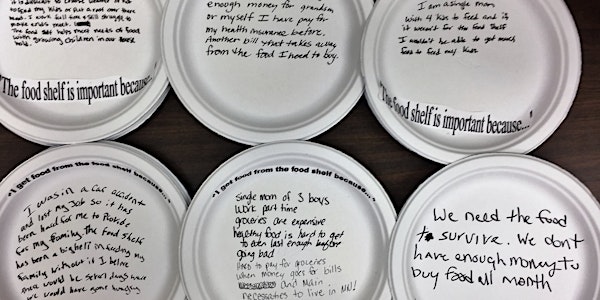 to feed my kids or put a roof over their
head. I work full time & still struggle to
make ends meet.
The food shelf helps meet needs of food
with growing children in our
"The food shelf is important because..."
enough money for grandson
or myself I have pay for
my health insurance before.
Another bill that takes away
from the food I need to buy.
I am a single mom
with 4 kids to feed and if
it weren't for the food shelf
I wouldn't be able to get much
food to feed my kids
"The food shelf is important because..."
"I get food from the food shelf because..."
I was in a car accident
and lost my Job so it has
been hard for me to Provide
for my family. The food shelf
has been a big help on feeding my
family without it I believe
there would be several days where
we would have gone hungry
"I get food from the food shelf because..."
Single mom of 3 boys
Work part time
groceries are expensive
healthy food is hard to get
to even last enough before
going bad
Hard to pay for groceries
when money goes for bills
and Main
necessaties to live in MN!
We need the food
to survive. We don't
have enough money to
buy food all month